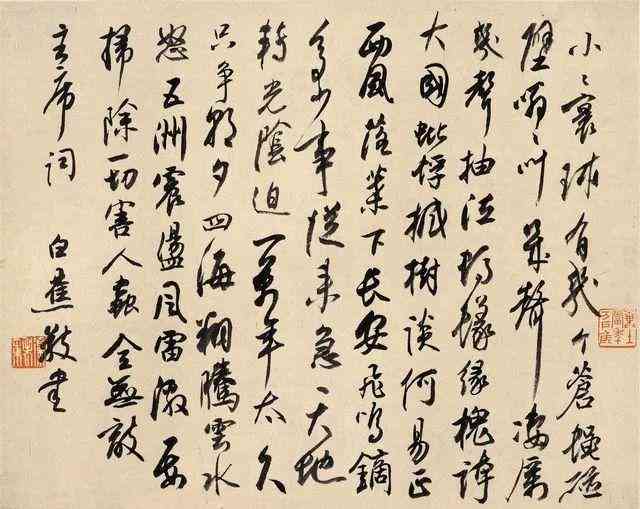 小〻寰球有幾个蒼蠅碰
壁嗡〻叫幾聲凄厲
幾聲抽泣螞蟻緣槐誇
大國蚍蜉撼樹談何易正
西風落葉下長安飛鳴鏑
多少事從来急天地
轉光陰迫一萬年太久
只争朝夕四海翻騰雲水
怒五洲震盪風雷激要
掃除一切害人蟲全無敵
主席詞
白蕉敬書